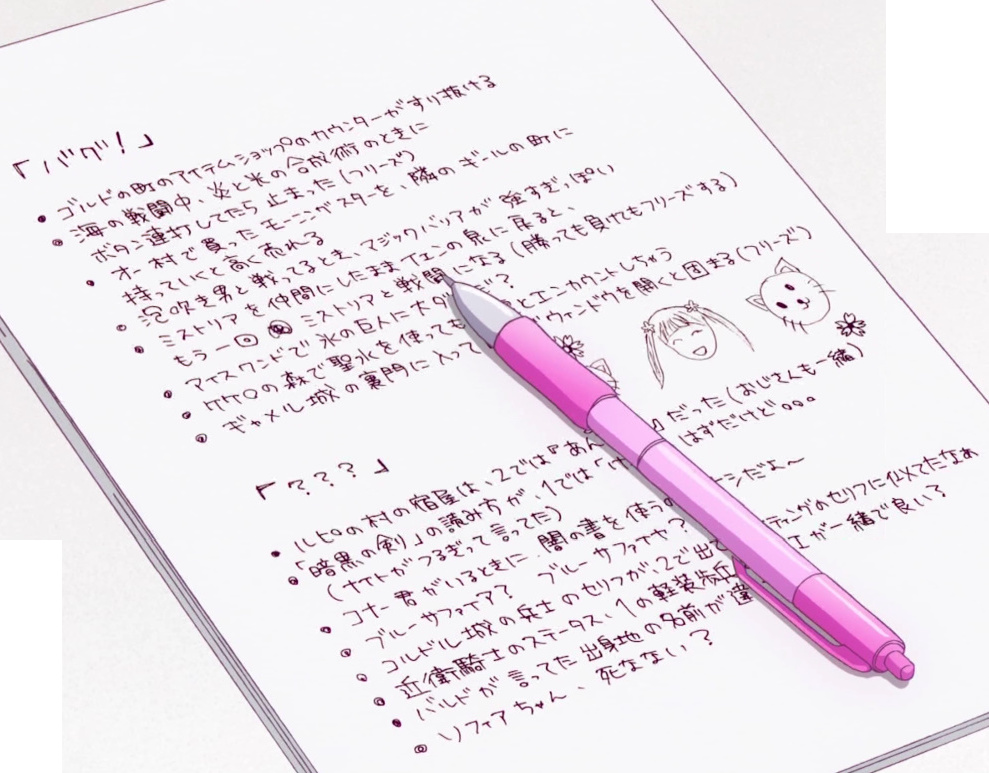 「バグ!」
ゴルドの町のアイテムショップのカウンターがすり抜ける
海の戦闘中、炎と氷の合成術のときに
ボタン連打してたら止まった(フリーズ)
オー村で買ったモーニングスターを、隣のギールの町に
持っていくと高く売れる
泡吹き男と戦ってるとき、マジックバリアが強すぎっぽい
ミストリアを仲間にしたままイエンの泉に戻ると、
もう一回 ミストリアと戦闘になる(勝っても負けてもフリーズする)
アイスワンドで氷の巨人に大ダ
ケケロの森で聖水を使っても とエンカウントしちゃう
ギャメル城の裏門に入って ウィンドウを開くと固まる(フリーズ)
「???」
ルピロの村の宿屋は、2では『あん だった(おじさんも一緒)
「暗黒の剣」の読み方が、1では「け はずだけど。。。
(ナイトがつるぎって言ってた)
コナー君がいるときに、闇の書を使うの ーンだよ〜
ブルーサファイア? ブルーサファイヤ?
コルドル城の兵士のセリフが、2で出て ティングのセリフに似てたなぁ
近衛騎士のステータス、1の軽装歩兵 が一緒で良い?
バルドが言ってた出身地の名前が違
ソフィアちゃん、死なない?